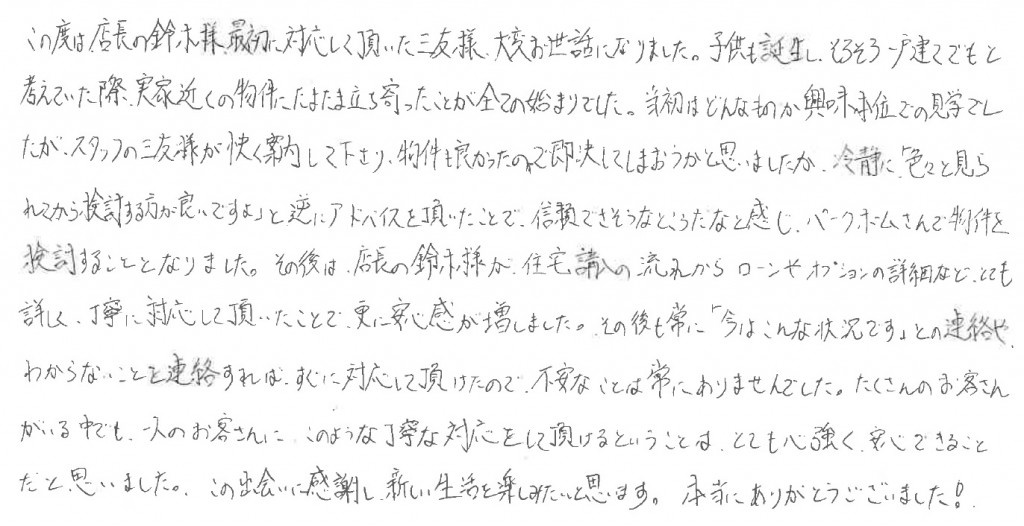 この度は店長の鈴木様、最初に対応して頂いた三友様、大変お世話になりました。子供も誕生し、そろそろ一戸建てでもと
考えていた際、実家近くの物件にたまたま立ち寄ったことが全ての始まりでした。当初はどんなものか興味本位での見学でし
たが、スタッフの三友様が快く案内して下さり、物件も良かったので即決してしまおうかと思いましたが、冷静に「色々と見ら
れてから検討する方が良いですよ」と逆にアドバイスを頂いたことで、信頼できそうなところだなと感じ、パークホームさんで物件を
検討することとなりました。その後は、店長の鈴木様が、住宅購入の流れからローンやオプションの詳細など、とても
詳しく、丁寧に対応して頂いたことで、更に安心感が増しました。その後も常に「今はこんな状況です」との連絡や、
わからないことを連絡すれば、すぐに対応して頂けたので、不安なことは常にありませんでした。たくさんのお客さん
がいる中でも、一人のお客さんに、このような丁寧な対応をして頂けるということは、とても心強く、安心できること
だと思いました。この出会いに感謝し、新しい生活を楽しみたいと思います。本当にありがとうございました!